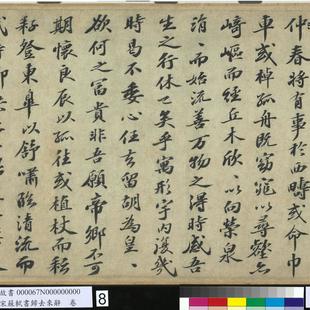 仲春將有事於西疇或命巾
車或棹孤舟既窈窕以尋壑亦
崎嶇而經丘木欣〻以向榮泉
涓〻而始流善萬物之得時感吾
生之行休已矣乎寓形宇內復幾
時曷不委心任去留胡為皇〻
欲何之富貴非吾願帝鄉不可
期懷良辰以孤往或植杖而耘
耔登東皋以舒嘯臨清流而
故書 000067N000000000
宋蘇軾書歸去來辭 卷
8